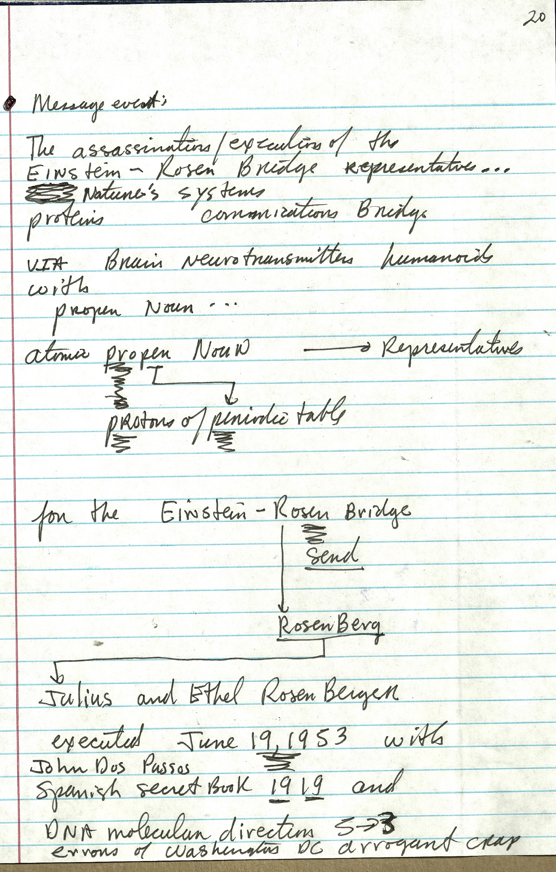 20
Message event:
The assassination/execution of the
Einstein - Rosen Bridge representatives...
Nature's systems
proteins communications Bridge
VIA Brain Neurotransmitters humanoids
with
proper Noun ...
atomic proper Noun → Representatives
protons of periodic table
for the Einstein - Rosen Bridge
Send
RosenBerg
Julius and Ethel RosenBerger
executed June 19, 1953 with
John Dos Passos
Spanish secret Book 1919 and
DNA molecular direction 5→3
errors of Washington DC arrogant crap